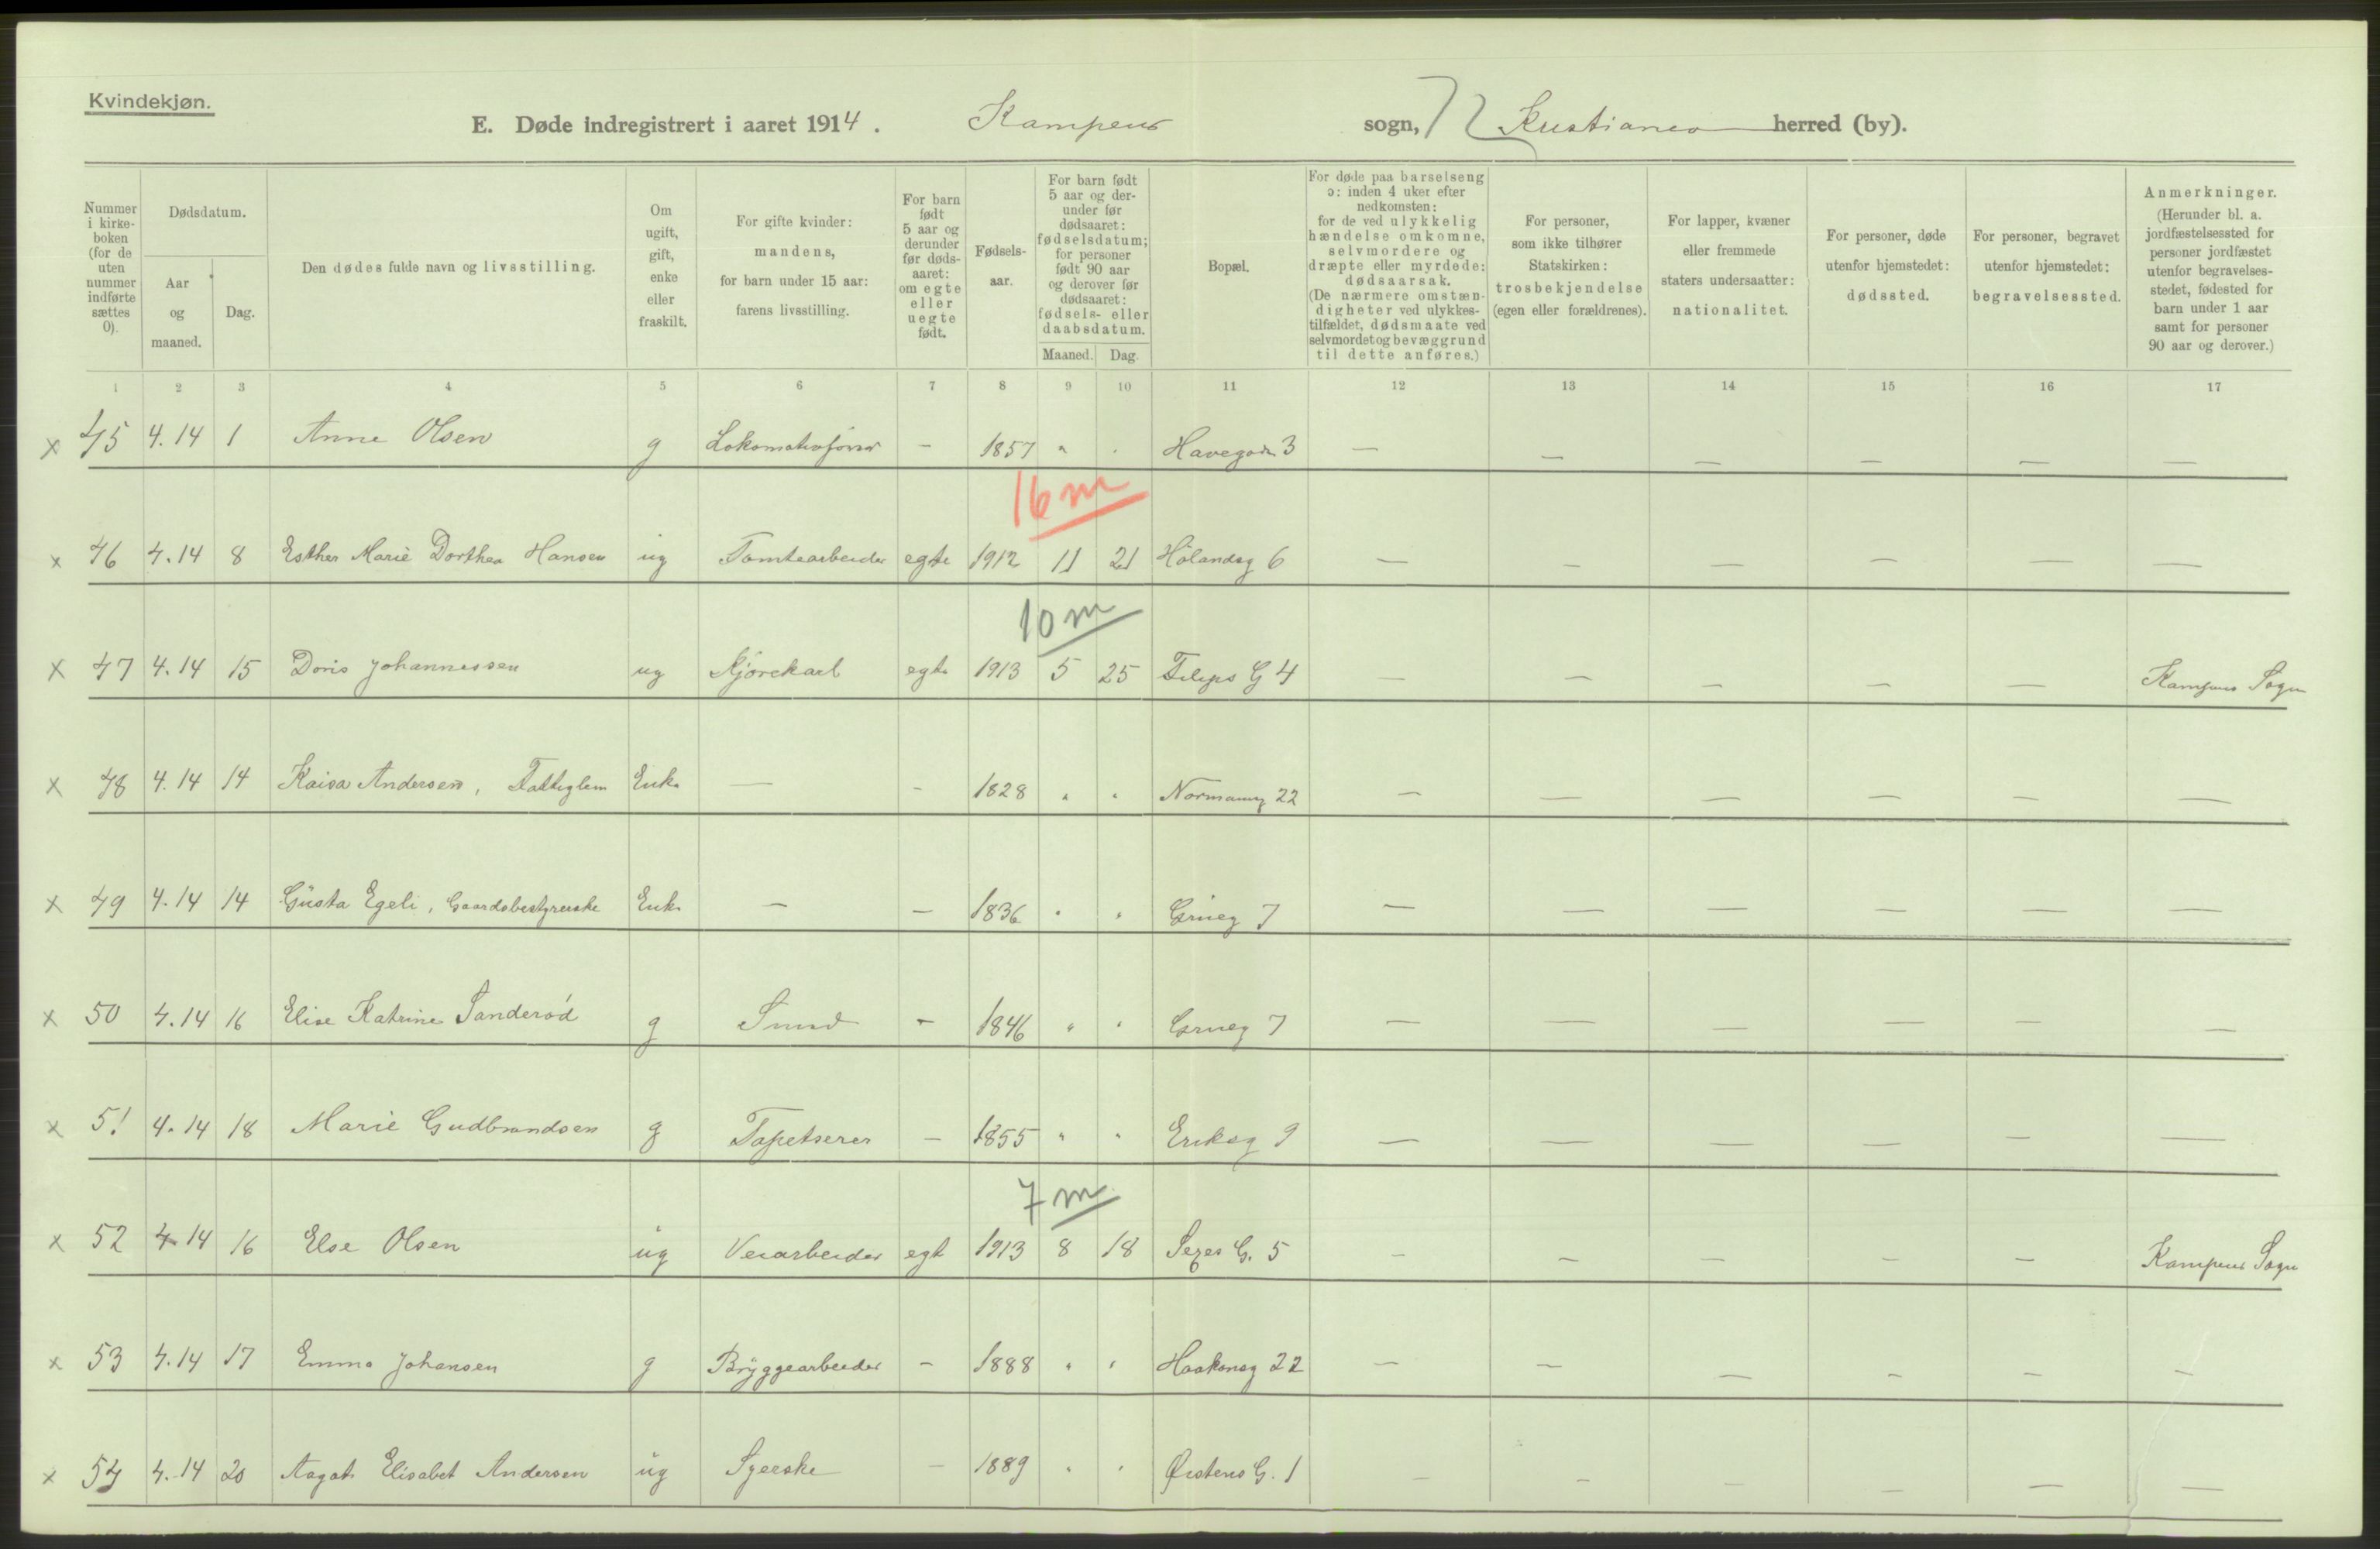 Kvindekjøn.
E. Døde indregistrert i aaret 1914. Kampens sogn, Kristiania herred (by).
Nummer i kirkeboken (for de uten nummer indførte sættes 0).
Dødsdatum.
Aar og maaned.
Dag.
Den dødes fulde navn og livsstilling.
Om ugift, gift, enke eller fraskilt.
For gifte kvinder: mandens, for barn under 15 aar: farens livsstilling.
For barn født 5 aar og derunder før dødsaaret: om egte eller uegte født.
Fødselsaar.
For barn født 5 aar og derunder før dødsaaret: fødselsdatum; for personer født 90 aar og derover før dødsaaret: fødsels- eller daabsdatum.
Maaned.
Dag.
Bopæl.
For døde paa barselseng ɔ: inden 4 uker efter nedkomsten: for de ved ulykkelig hændelse omkomne, selvmordere og dræpte eller myrdede: dødsaarsak. (De nærmere omstændigheter ved ulykkestilfældet, dødsmaate ved selvmordet og bevæggrund til dette anføres.)
For personer, som ikke tilhører Statskirken: trosbekjendelse (egen eller forældrenes).
For lapper, kvæner eller fremmede staters undersaatter: nationalitet.
For personer, døde utenfor hjemstedet: dødssted.
For personer, begravet utenfor hjemstedet: begravelsessted.
Anmerkninger. (Herunder bl. a. jordfæstelsessted for personer jordfæstet utenfor begravelsesstedet, fødested for barn under 1 aar samt for personer 90 aar og derover.)
1 2 3 4 5 6 7 8 9 10 11 12 13 14 15 16 17
x 45 4.14 1 Anne Olsen g Lokomotivfører – 1857 " " Havegaden 3 — — — — — —
16 m
x 46 4.14 8 Esther Marie Dorthea Hansen ug Tomtearbeider egte 1912 11 21 Hölandsg 6 — — — — — —
10 m
x 47 4.14 15 Doris Johannessen ug Kjørekarl egte 1913 5 25 Filips G 4 — — — — — Kampens Sogn
x 48 4.14 14 Kaisa Andersen, Fattiglem Enke — – 1828 " " Normanng 22 — — — — — —
x 49 4.14 14 Gusta Egeli, Gaardsbestyrerske Enke — – 1836 " " Grueg 7 — — — — — —
x 50 4.14 16 Elise Katrine Sanderød g Smed – 1846 " " Grueg 7 — — — — — —
x 51 4.14 18 Marie Gudbrandsen g Tapetserer – 1855 " " Eriksg 9 — — — — — —
7 m
x 52 4.14 16 Else Olsen ug Veiarbeider egt 1913 8 18 G. 5 — — — — — Kampens Sogn
x 53 4.14 17 Emma Johansen g Bryggearbeider – 1888 " " Haakonsg 22 — — — — — —
x 54 4.14 20 Aagot Elisabet Andersen ug Syerske – 1889 " " Østens G. 1 — — — — — —